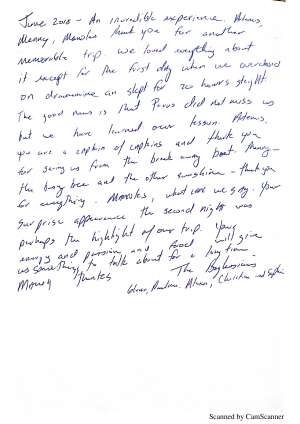 June 2018 - An incredible experience. Artemis,
Manny, Manolis thank you for another
memorable trip. We loved everything about
it except for the first day when we overdosed
on dramamine an slept for 20 hours straight
The good news is that Paros did not miss us
but we have learned our lesson. Artemis,
you are a captain of captains and thank you
for saving us from the break away boat
the busy bee and the other sunshine - thank you
for everything. Manolis, what can we say. Your
surprise appearance the second night was
perhaps the highlight of our trip. Your
energy and passion and food will give
us something to talk about for a long time.
Many thanks The
Christian and Sophia
Scanned by CamScanner